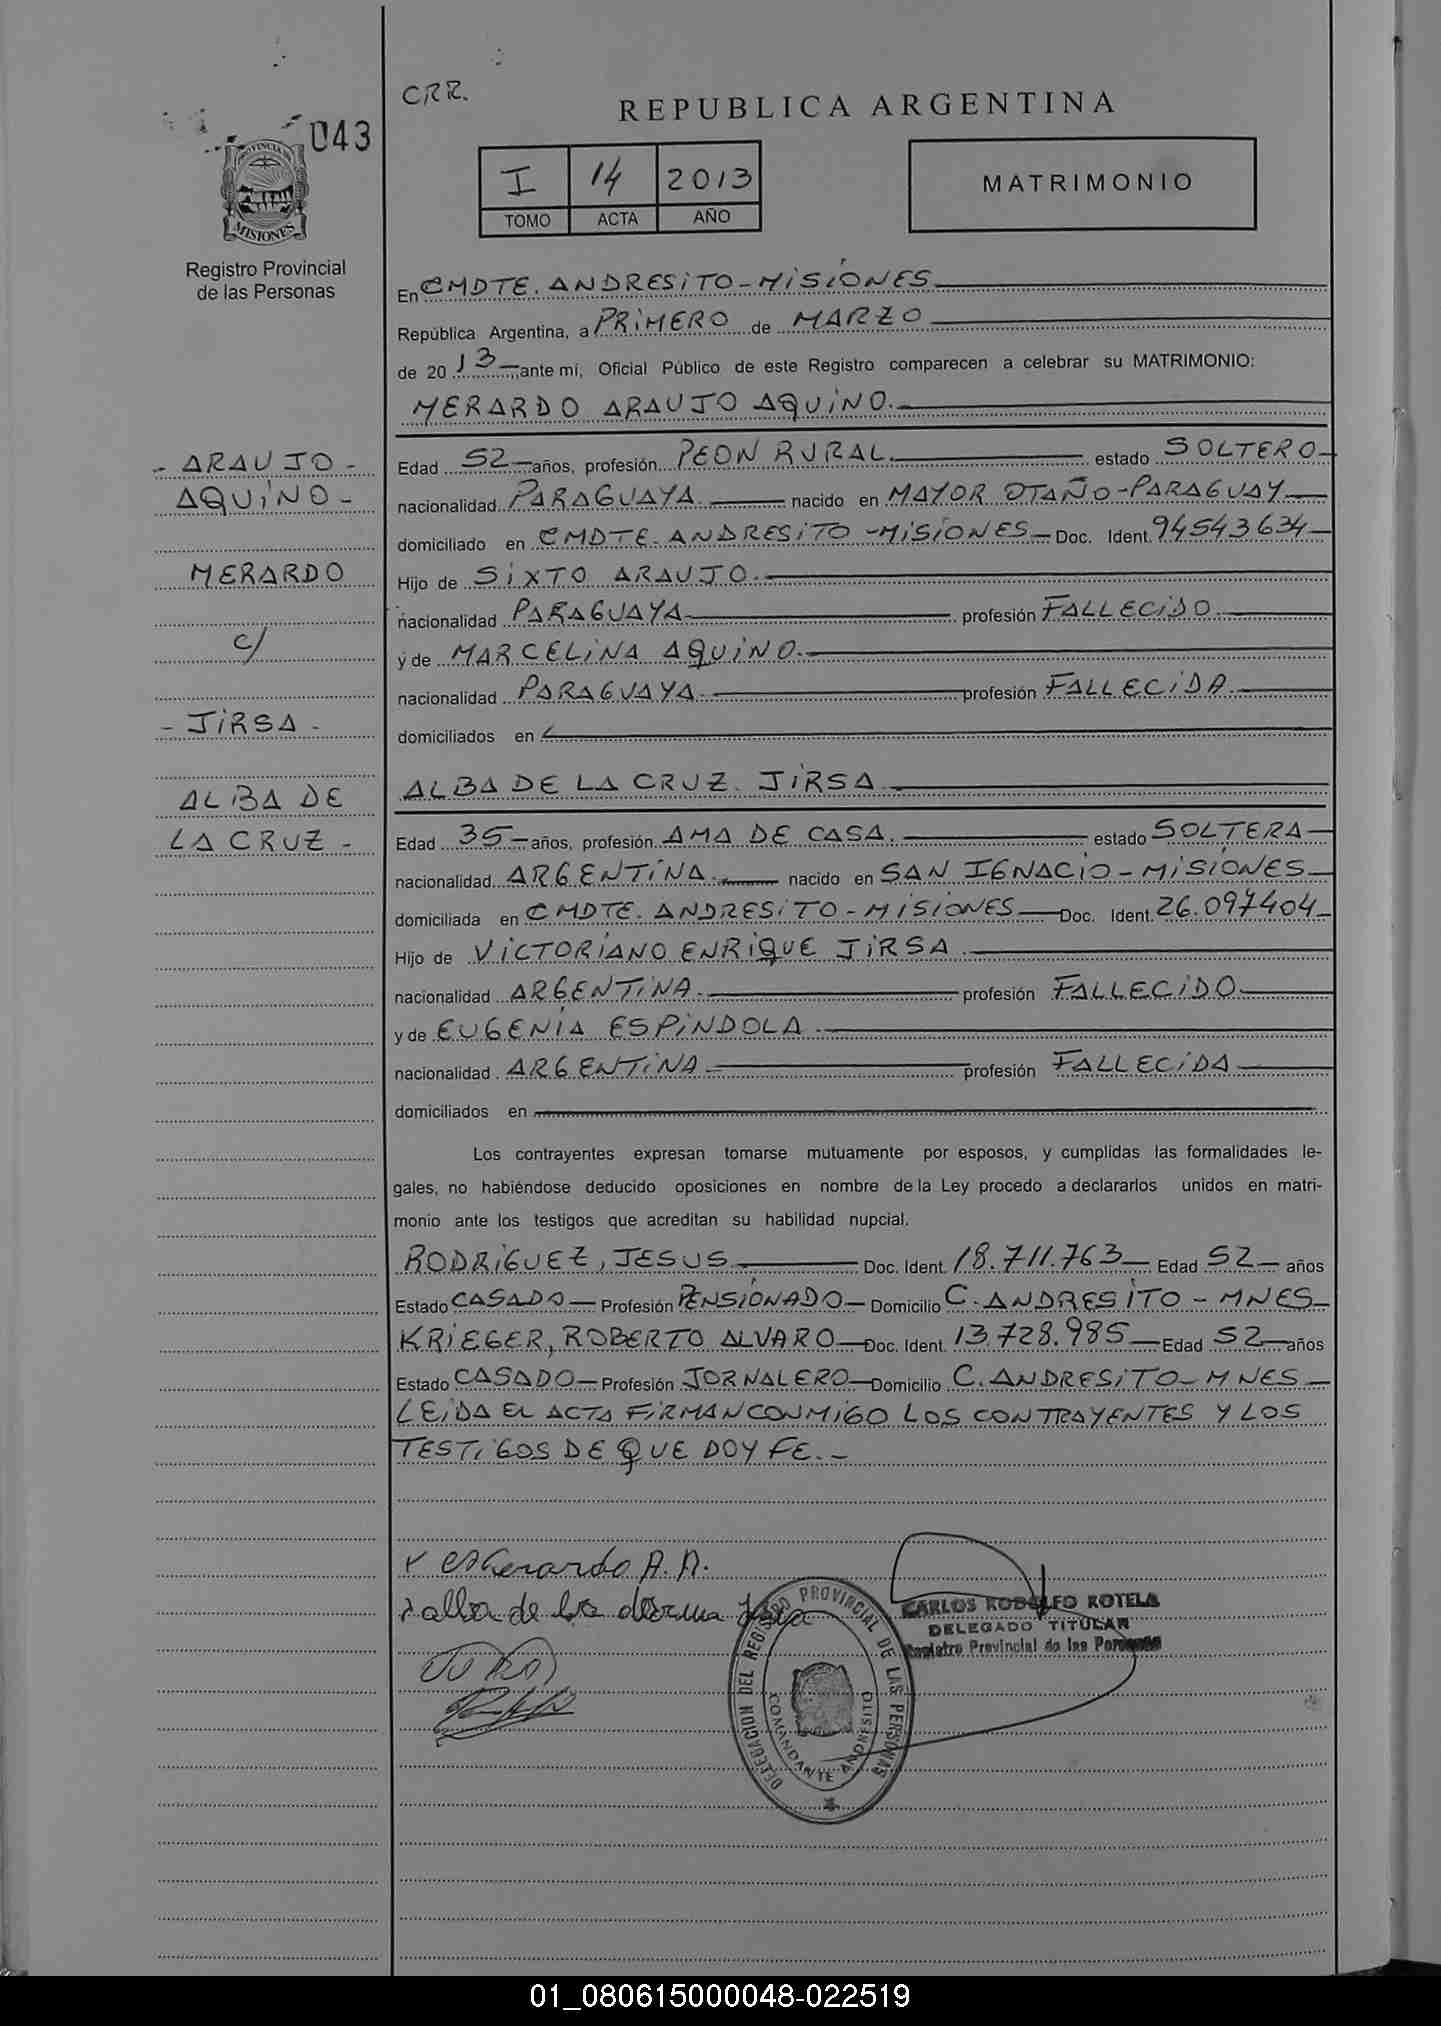 CRR.
043
REPUBLICA ARGENTINA
PROVINCIA DE
MISIONES
I 14 2013
TOMO ACTA AÑO
MATRIMONIO
Registro Provincial
de las Personas
En CMDTE. ANDRESITO - MISIONES
República Argentina, a PRIMERO de MARZO
de 2013 ante mí, Oficial Público de este Registro comparecen a celebrar su MATRIMONIO:
MERARDO ARAUJO AQUINO.
- ARAUJO -
AQUINO -
MERARDO
c/
- JIRSA -
ALBA DE
LA CRUZ -
Edad 52 años, profesión PEON RURAL. estado SOLTERO
nacionalidad PARAGUAYA nacido en MAYOR OTAÑO - PARAGUAY
domiciliado en CMDTE. ANDRESITO - MISIONES Doc. Ident. 94543634
Hijo de SIXTO ARAUJO.
nacionalidad PARAGUAYA profesión FALLECIDO
y de MARCELINA AQUINO.
nacionalidad PARAGUAYA profesión FALLECIDA
domiciliados en
ALBA DE LA CRUZ JIRSA
Edad 35 años, profesión AMA DE CASA. estado SOLTERA
nacionalidad ARGENTINA. nacido en SAN IGNACIO - MISIONES
domiciliada en CMDTE. ANDRESITO - MISIONES Doc. Ident. 26.097404
Hijo de VICTORIANO ENRIQUE JIRSA
nacionalidad ARGENTINA. profesión FALLECIDO
y de EUGENIA ESPINDOLA
nacionalidad ARGENTINA profesión FALLECIDA
domiciliados en
Los contrayentes expresan tomarse mutuamente por esposos, y cumplidas las formalidades le-
gales, no habiéndose deducido oposiciones en nombre de la Ley procedo a declararlos unidos en matri-
monio ante los testigos que acreditan su habilidad nupcial.
RODRIGUEZ, JESUS Doc. Ident. 18.711.763 Edad 52 años
Estado CASADO Profesión PENSIONADO Domicilio C. ANDRESITO - MNES
KRIEGER, ROBERTO ALVARO Doc. Ident. 13.728.985 Edad 52 años
Estado CASADO Profesión JORNALERO Domicilio C. ANDRESITO - MNES
LEIDA EL ACTA FIRMAN CONMIGO LOS CONTRAYENTES Y LOS
TESTIGOS DE QUE DOY FE. -
A. A.
alba de la
CARLOS RODOLFO ROTELA
DELEGADO TITULAR
Registro Provincial de las Personas
DELEGACION DEL REGISTRO PROVINCIAL DE LAS PERSONAS
COMANDANTE ANDRESITO
01_080615000048-022519